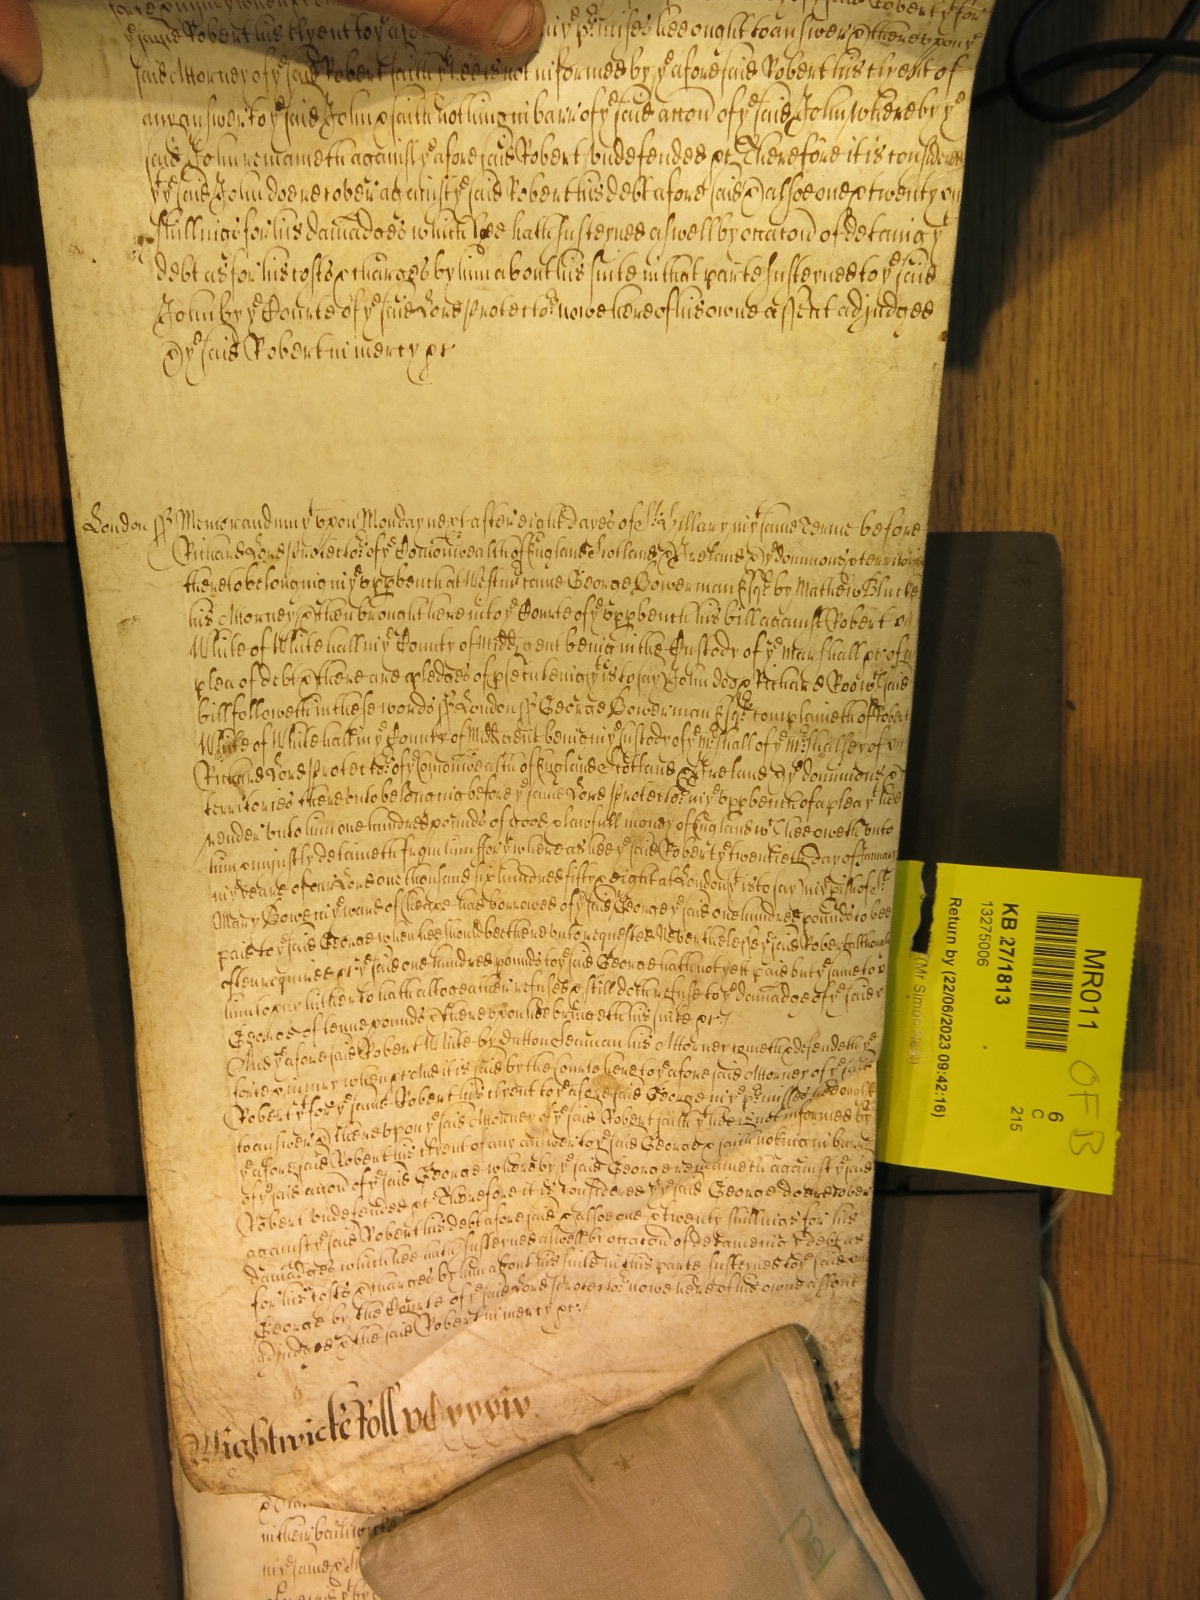 yᵉ said Robert his Clyent to yᵉ afor in yᵉ pʳmises hee ought to answer & thereupon yᵉ
said Attorney of yᵉ said Robert saith yᵗ hee is not informed by yᵉ aforesaid Robert his Clyent of
any answer to yᵉ said John & saith nothing in barr of yᵉ said accon of yᵉ said John whereby yᵉ
said John remaineth against yᵉ aforesaid Robert undefended &c Therefore it is considered
yᵗ yᵉ said John doe recover against yᵉ said Robert his debt aforesaid & alsoe one & twenty
shillings for his damadges which hee hath susteyned aswell by occacon of detaining yᵉ
debt as for his costs & charges by him about his suite in that parte susteyned to yᵉ said
John by yᵉ Courte of yᵉ said Lord Protectoʳ nowe here of his owne assent adjudged
& yᵉ said Robert in mercy &c
London ss Memorandum yᵗ upon Monday next after eight dayes of Sᵗ Hillary in yⁱˢ same Terme before
Richard Lord Protectoʳ of yᵉ Comonwealth of England Scotland & Ireland & yᵉ dominions & territories
thereto belonging in yᵉ uppbench at Westmʳ came George Bowerman Esqʳ by Mathew Blucke
his Attorney & then brought here into yᵉ Courte of yᵉ uppbench his bill against Robert
White of Whitehall in yᵉ County of Midd gent being in the Custody of yᵉ Marshall &c of a
plea of debt & there are pledges of prosecuteing yᵗ is to say John doe & Richard Roo wᶜʰ said
bill followeth in these words ss London ss George Bowerman Esqʳ complaineth of Robert
White of Whitehall in yᵉ County of Midd gent being in yᵉ Custody of yᵉ Mʳshall of yᵉ Mʳshalsey of
Richard Lord Protectoʳ of yᵉ Comonwealth of England Scotland & Ireland & yᵉ dominions &
territories thereunto belonging before yᵉ same Lord Protectoʳ in yᵉ uppbench of a plea yᵗ hee
render unto him one hundred pounds of good & lawfull money of England wᶜʰ hee oweth unto
him & unjustly detaineth from him for yᵗ whereas hee yᵉ said Robert yᵉ twentieth day of January
in yᵉ yeare of our Lord one thousand six hundred fifty & eight at London yᵗ is to say in yᵉ pish of Sᵗ
Mary Bowe in yᵉ ward of Cheape had borrowed of yᵉ said George yᵉ said one hundred pounds to bee
paid to yᵉ said George when hee should bee thereunto requested Neverthelesse yᵉ said Robert although
often required &c yᵉ said one hundred pounds to yᵉ said George hath not yett paid but yᵉ same to
him to pay hitherto hath altogeather refused & still doth refuse to yᵉ damadge of yᵉ said
George of tenne pounds & thereupon hee bringeth his suite &c
And yᵉ aforesaid Robert White by Dutton Seaman his Attorney cometh & defendeth yᵉ
force & injury when &c And it is said by the Courte here to yᵉ aforesaid Attorney of yᵉ said
Robert yᵗ for yᵉ same Robert his Clyent to yᵉ aforesaid George in yᵉ pʳmisses hee ought
to answer & thereupon yᵉ said Attorney of yᵉ said Robert saith yᵗ hee is not informed by
yᵉ aforesaid Robert his Clyent of any answer to yᵉ said George & saith nothing in barre
of yᵉ said accon of yᵉ said George whereby yᵉ said George remaineth against yᵉ said
Robert undefended &c Therefore it is considered yᵗ yᵉ said George doe recover
against yᵉ said Robert his debt aforesaid & alsoe one & twenty shillings for his
damadges which hee hath susteyned aswell by occacon of detaineing yᵉ debt as
for his costs & charges by him about his suite in this parte susteyned to yᵉ said
George by the Courte of yᵉ said Lord Protectoʳ nowe here of his owne assent
adjudged & the said Robert in mercy &c
Wightwicke Roll
in their bailiwicke
in yᵉ same
MR011
6
C
215
KB 27/1813
13275006
Return by (22/06/2023 09:42:16)
OFB